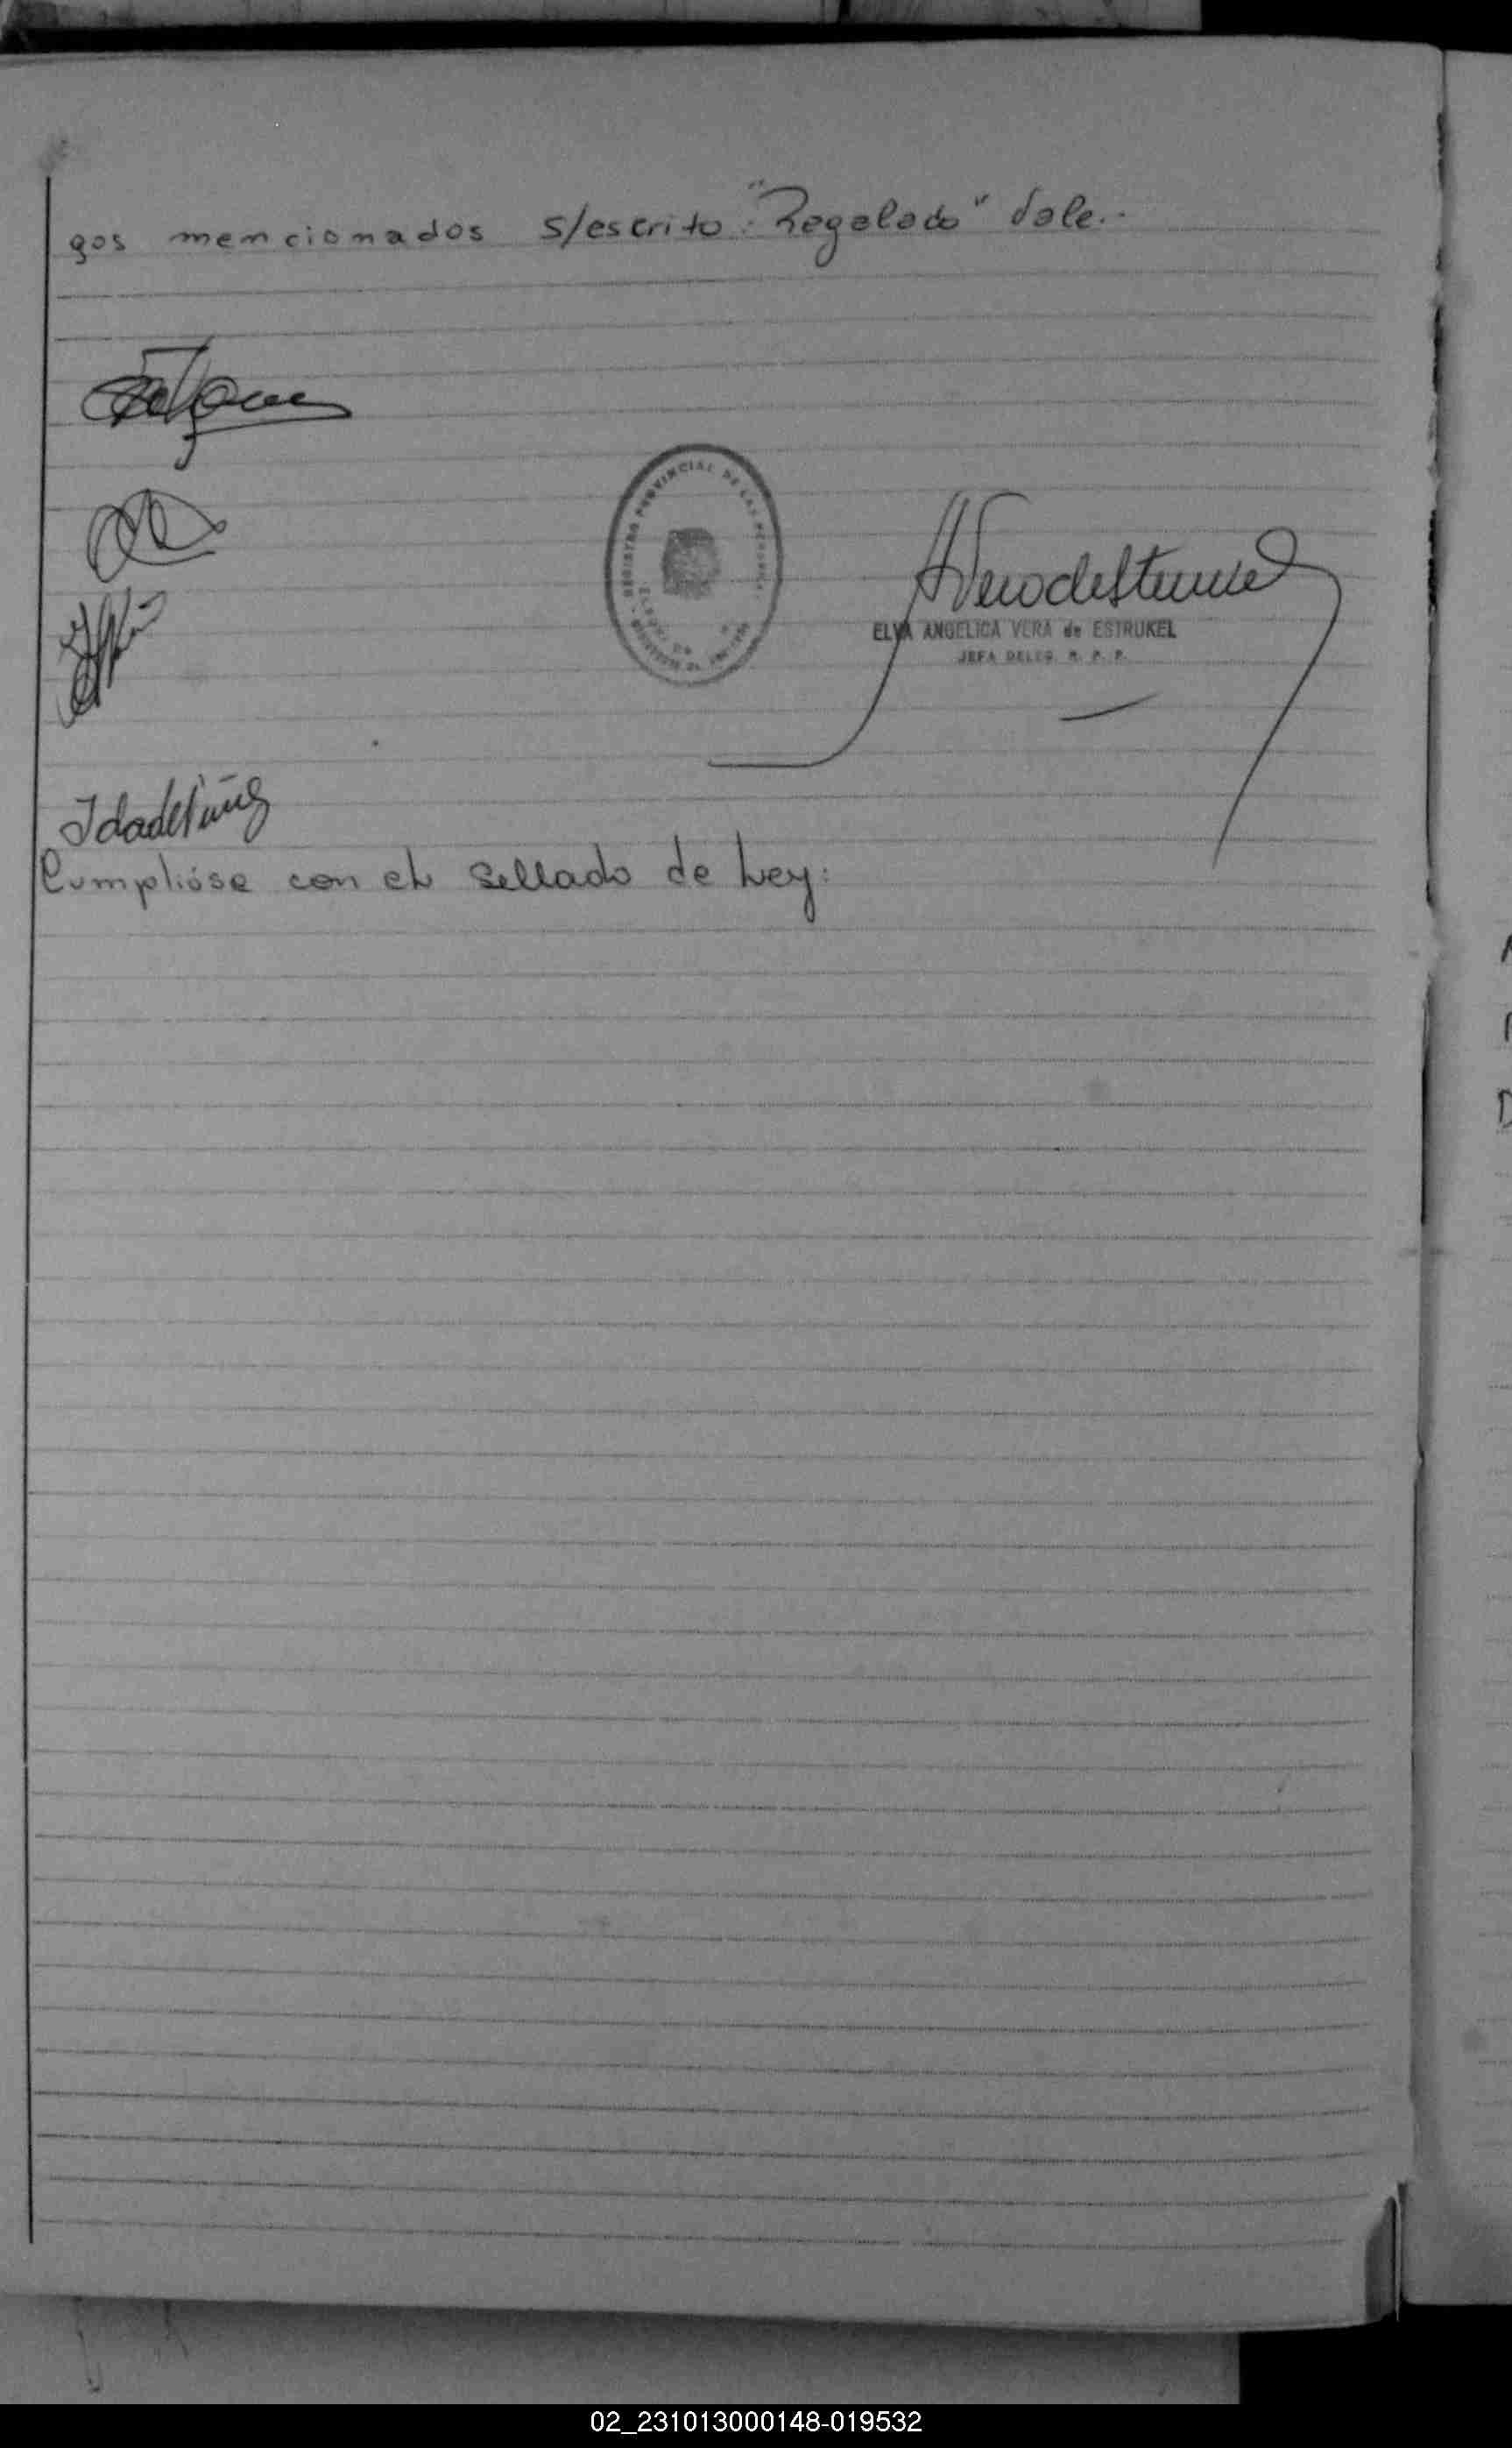 gos mencionados s/escrito: "Regalado" Vale.-
REGISTRO PROVINCIAL DE LAS PERSONAS
ELVA ANGELICA VERA de ESTRUKEL
JEFA DELEG. R. P. P.
Cumplióse con el sellado de Ley:
02_231013000148-019532